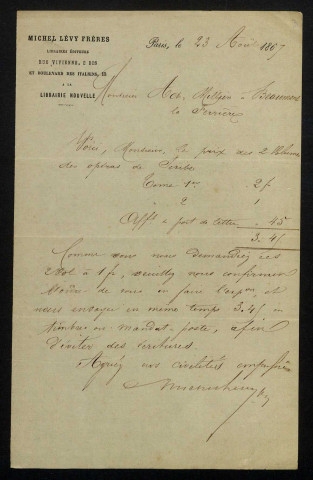 MICHEL LÉVY FRÈRES
LIBRAIRES ÉDITEURS
RUE VIVIENNE, 2 BIS
ET BOULEVARD DES ITALIENS, 15
A LA
LIBRAIRIE NOUVELLE
Paris, le 23 Août 1867
Monsieur Ach. Beaumont
la Ferrière
Voici, Monsieur, le prix des 2 Volumes
des opéras de Scribe
Tome 1er 2 f
" 2 1
Afft & port de lettre . 45
3.45
Comme vous nous demandiez ces
2 Vol à 1 f, veuillez nous confirmer
l'ordre de vous en faire l'expon, et
nous envoyer en même temps 3.45 en
timbres ou mandat-poste, afin
d'éviter des écritures.
Agréez nos civilités